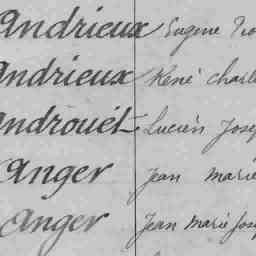 Andrieux Eugène
Andrieux René Charl
Androuët Lucien Jose
Anger Jean Marie
Anger Jean Marie Jose